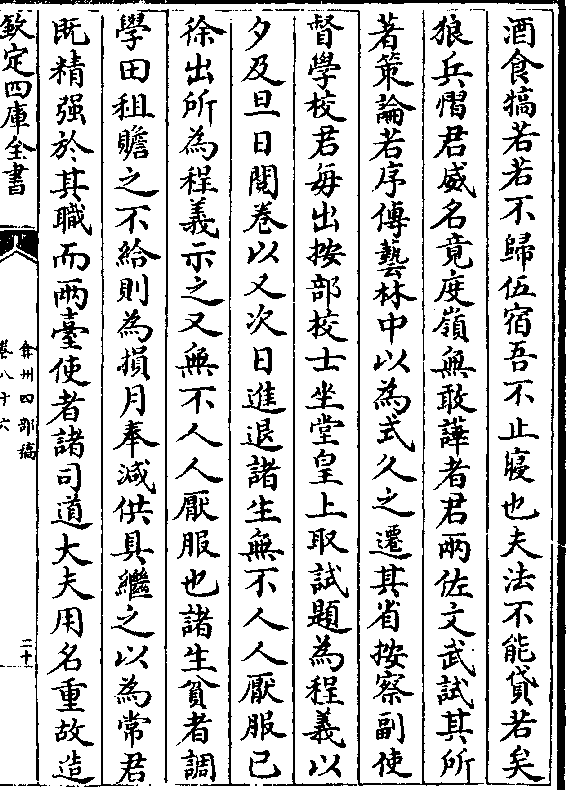 酒食犒若若不歸伍宿吾不止寢也夫法不能貸若矣
狼兵慴君威名竟度嶺無敢譁者君兩佐文武試其所
著策論若序傳藝林中以為式久之遷其省按察副使
督學校君每出按部校士坐堂皇上取試題為程義以
夕及旦日閱卷以又次日進退諸生無不人人厭服已
徐出所為程義示之又無不人人厭服也諸生貧者調
學田租贍之不給則為損月奉減供具繼之以為常君
既精强於其職而兩臺使者諸司道大夫用名重故造
欽定四庫全書
弇州四部稿
卷八十六
二十